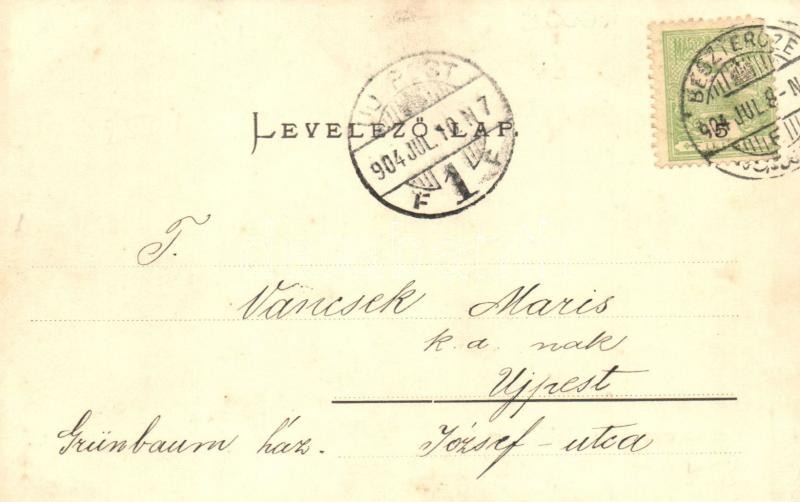 BESZTERCZE
904 JUL 8-N
5
UJPEST
904 JUL. 10. N 7
F 1 F
LEVELEZŐ-LAP.
T.
Vancsek Maris
k. a. nak
Ujpest
Grünbaum ház. József-utca